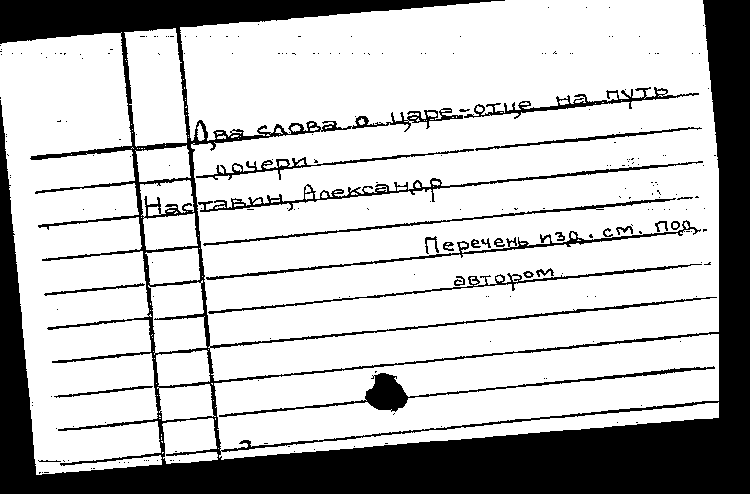 Два слова о царе-отце на путь
дочери.
Наставин, Александр
Перечень изд. см. под
автором